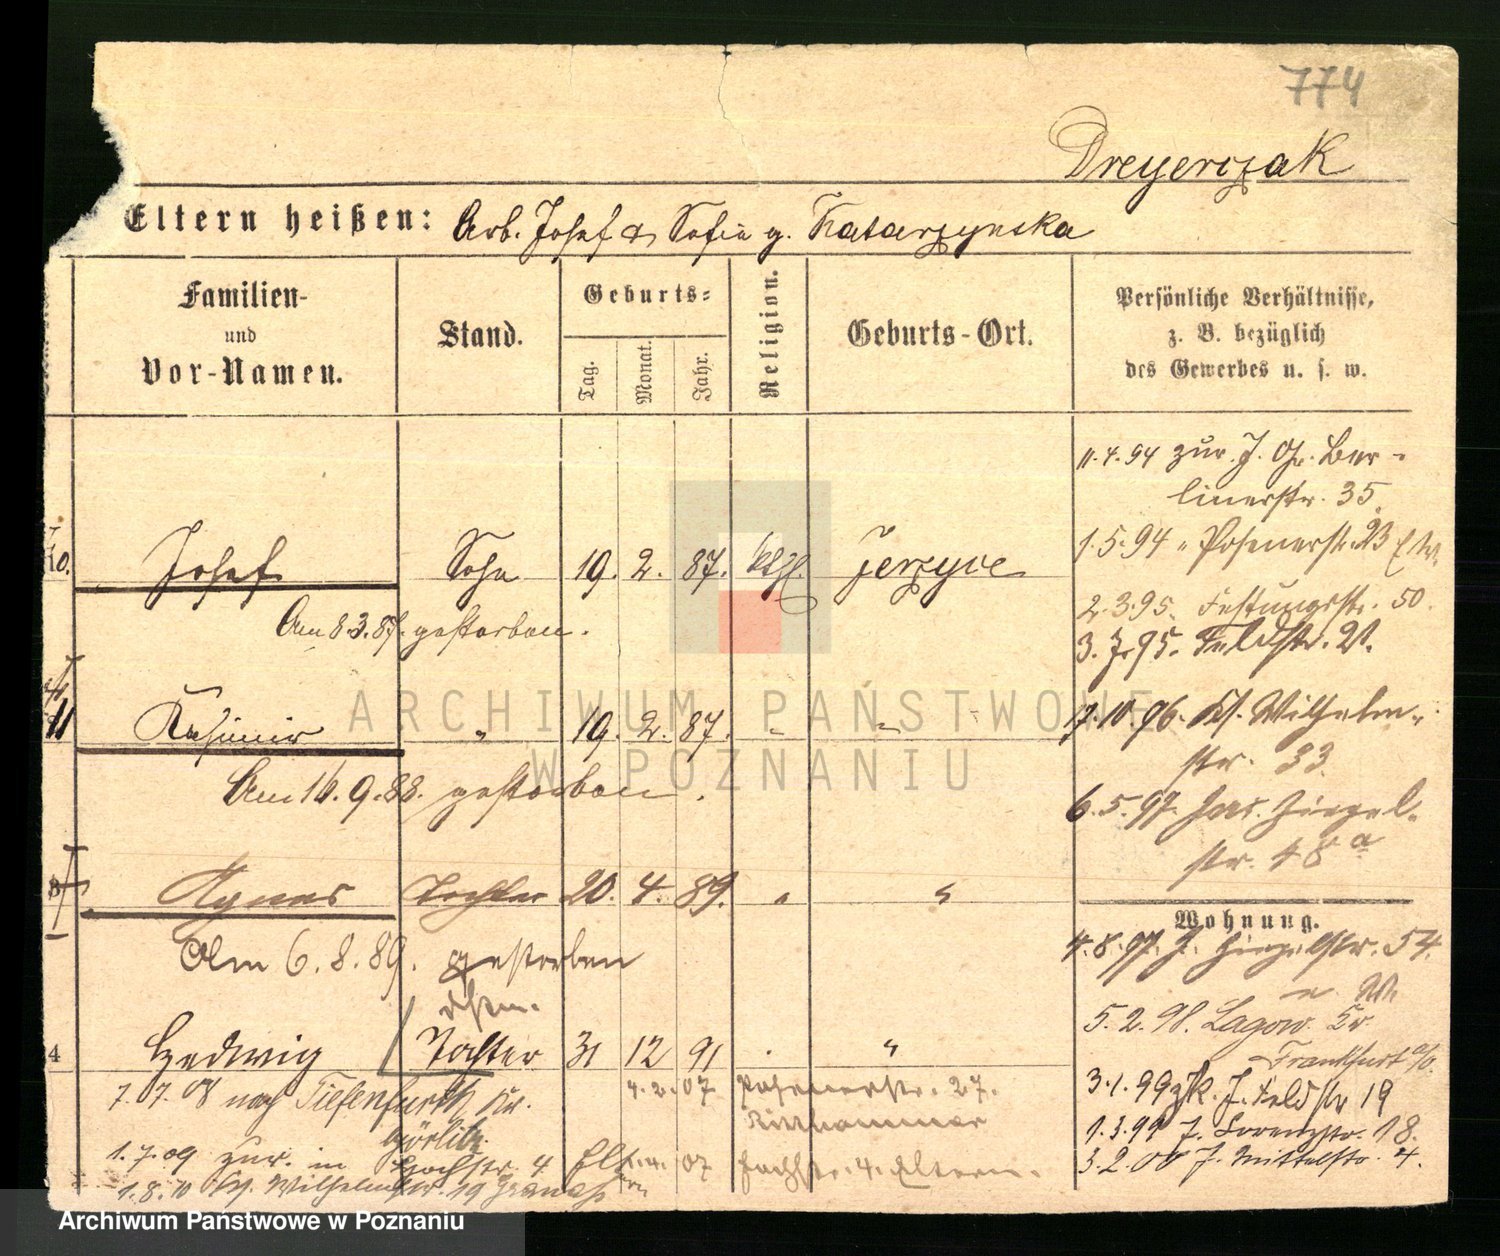 774
Dreyerczak
Eltern heißen: Arb. Josef & Sofie g. Katarzynska
Familien-
und
Vor-Namen.
Stand.
Geburts-
Tag.
Monat.
Jahr.
Religion.
Geburts-Ort.
Persönliche Verhältnisse,
z. B. bezüglich
des Gewerbes u. s. w.
11.4.94 zur. J. Gr. Ber-
linerstr. 35.
10. Josef Sohn 19. 2. 87. kthl. Jerzyce
1.5.94 " Posenerstr. 23
Am 8.3.87. gestorben.
2.3.95. Festungsstr. 50.
3.7.95. Feldstr. 21.
11 Kasimir " 19. 2. 87. " "
7.10.96. Wilhelm-
str. 33.
Am 16.9.88. gestorben.
6.5.97. Ziegel-
str. 48a
Agnes Tochter 20. 4. 89. " "
Wohnung.
Am 6.8.89. gestorben
4.8.97. J. Ziegelstr. 54.
5.2.98. Lagow
Frankfurt a/O.
4 Hedwig Tochter 31 12 91 . "
3.1.99 zk. J. Feldstr 19
7.7.08 nach Tiefenfurth Kr.
Görlitz
4.2.07 Posenerstr. 27.
1.3.99 J. Lorenzstr. 18.
1.7.09 zur. in Hochstr. 4 Elt.
07 Hochstr. 4. Eltern.
3.2.00 J. Mittelstr. 4.
1.8.10 Wilhelmstr. 19
ARCHIWUM PAŃSTWOWE
W POZNANIU
Archiwum Państwowe w Poznaniu